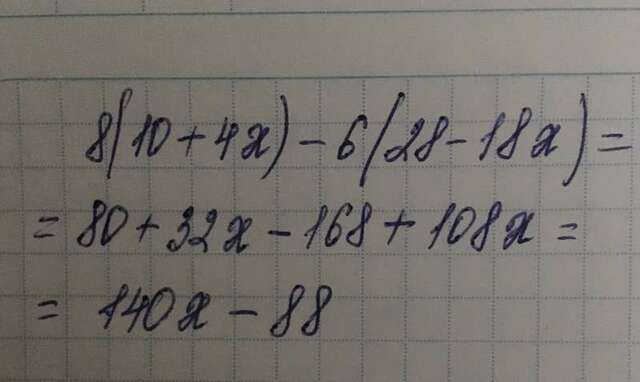 8(10+4x)-6(28-18x)=
=80+32x-168+108x=
=140x-88